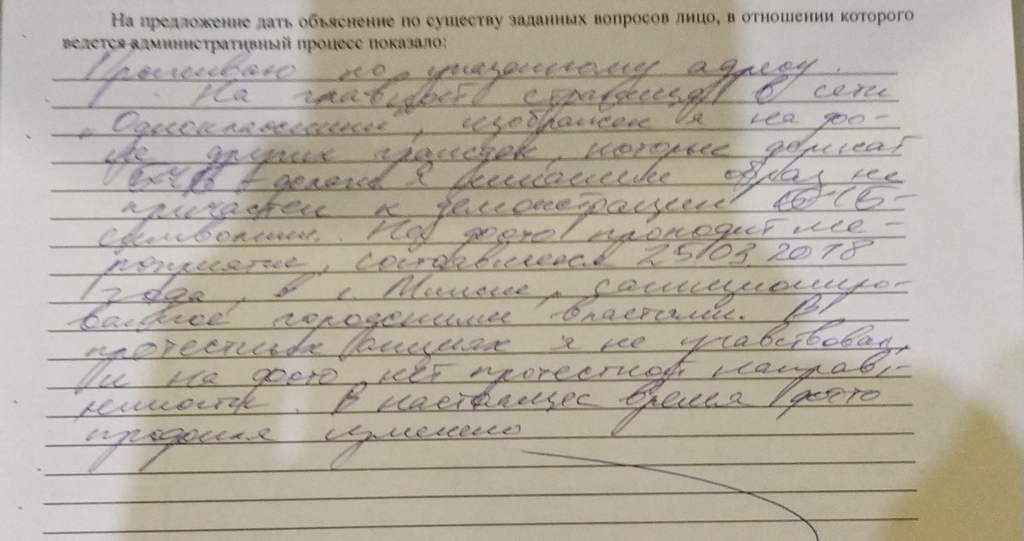 На предложение дать объяснение по существу заданных вопросов лицо, в отношении которого
ведется административный процесс показало:
Проживаю по указанному адресу.
На главной странице в сети
„Одноклассники", изображен я на фо-
не других граждан, которые держат
я никоим образ не
причастен к демонстрации БЧБ-
символики. На фото проходит ме-
роприятие, состоявшееся 25.03.2018
года, в г. Минске, санкциониро-
ванное городскими властями. В
протестных акциях я не учавствовал,
и на фото нет протестной направ-
ленности. В настоящее время фото
профиля изменено